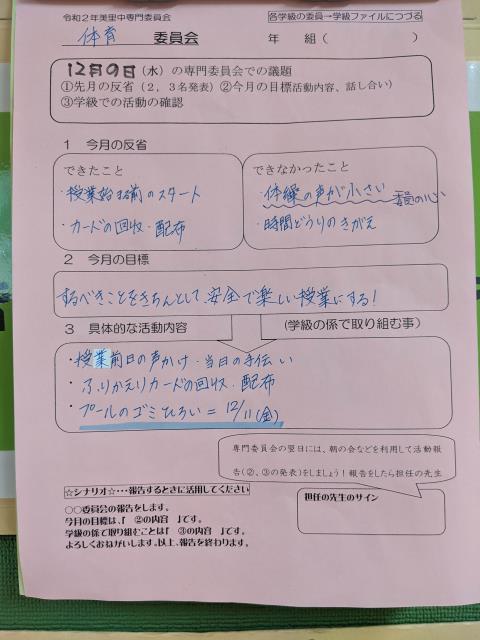 令和２年美里中専門委員会
各学級の委員→学級ファイルにつづる
体育 委員会 年 組（ ）
12月9日（水）の専門委員会での議題
①先月の反省（２，３名発表）②今月の目標活動内容、話し合い）
③学級での活動の確認
１ 今月の反省
できたこと
・授業始まる前のスタート
・カードの回収・配布
できなかったこと
・体操の声が小さい
委員の
・時間どうりのきがえ
２ 今月の目標
するべきことをきちんとして、安全で楽しい授業にする！
３ 具体的な活動内容 （学級の係で取り組む事）
・授業前日の声かけ・当日の手伝い
・ふりかえりカードの回収・配布
・プールのゴミひろい＝12/11(金)
専門委員会の翌日には、朝の会などを利用して活動報
告（②、③の発表）をしましょう！報告をしたら担任の先生
☆シナリオ☆・・・報告するときに活用してください
○○委員会の報告をします。
今月の目標は、「 ②の内容 」です。
学級の係で取り組むことは「 ③の内容 」です。
よろしくおねがいします。以上、報告を終わります。
担任の先生のサイン